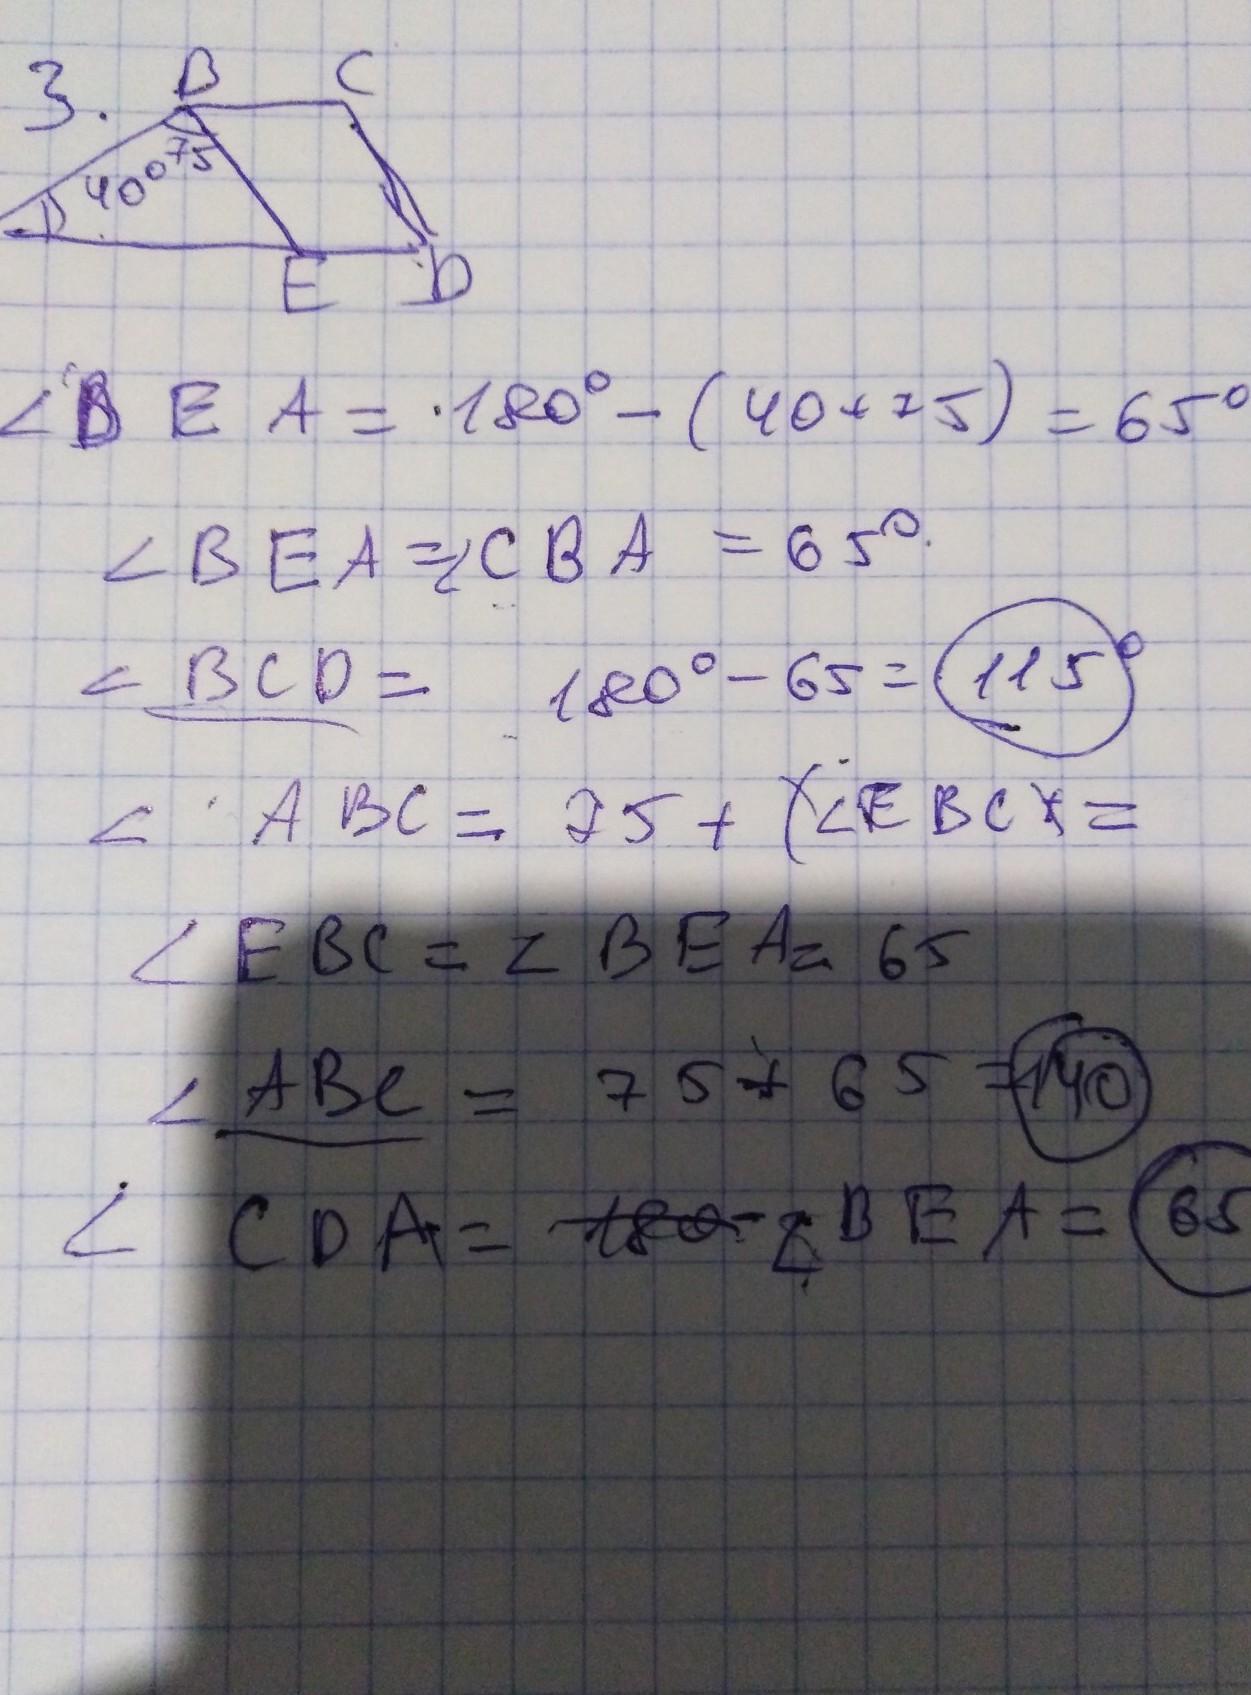 3.
B C
40° 75
E D
∠BEA = 180° - (40+75) = 65°
∠BEA = ∠CBA = 65°.
∠BCD = 180° - 65 = 115°
∠ABC = 75 + (∠EBC) =
∠EBC = ∠BEA = 65
∠ABC = 75 + 65 = 140
∠CDA = ∠BEA = 65